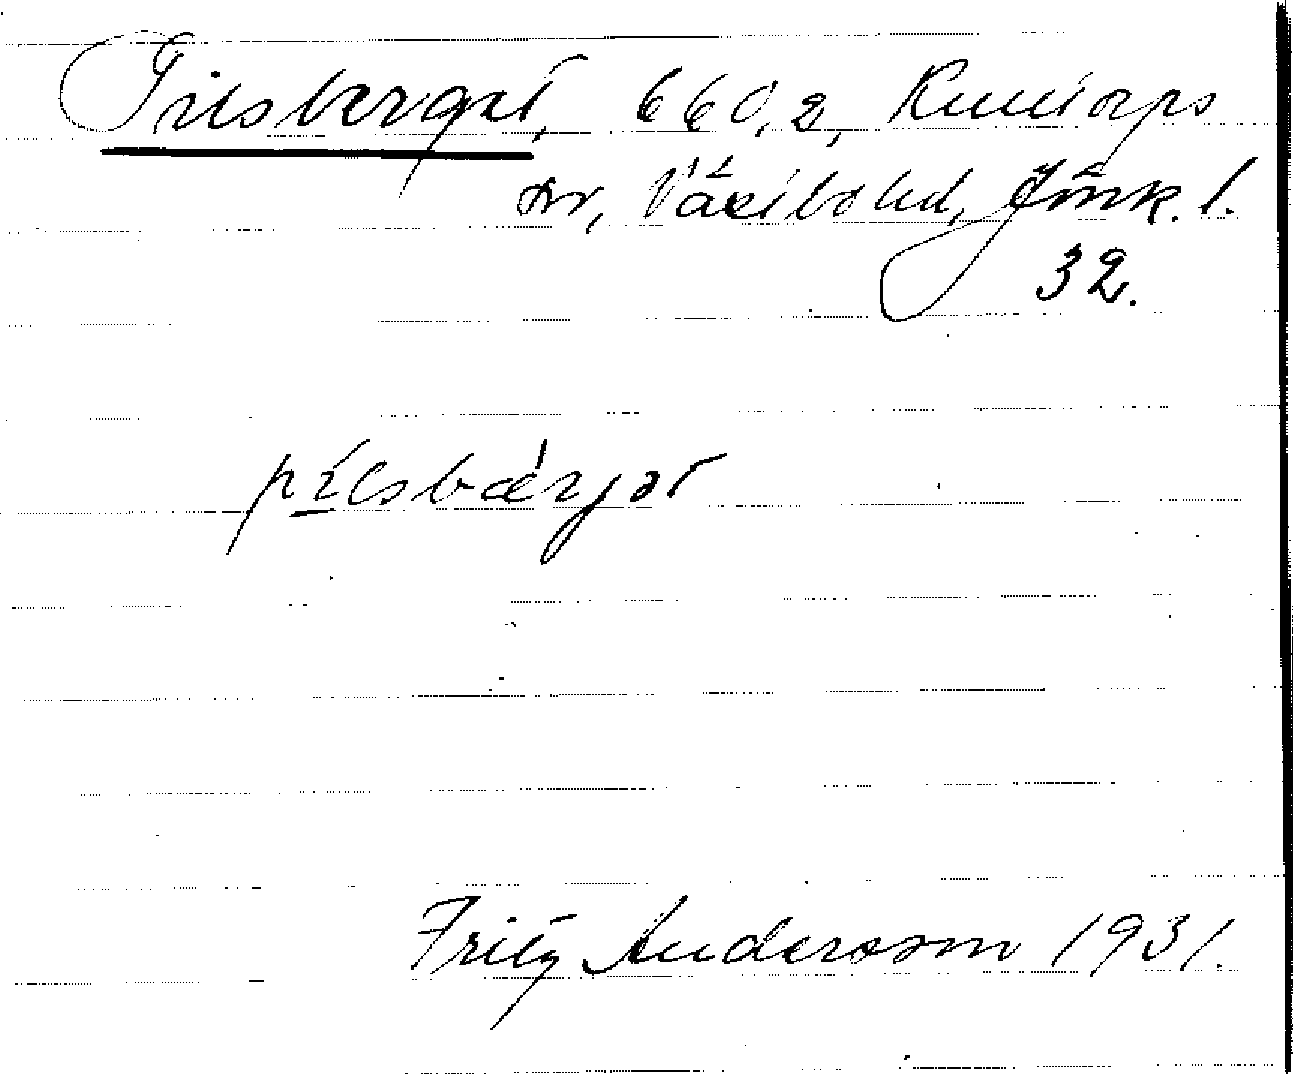 Pilsberget, 660,2, Kulltorps
sn, Västbo hd, Jönk. l.
32.
pilsbærjət
Fritz Andersson 1931.